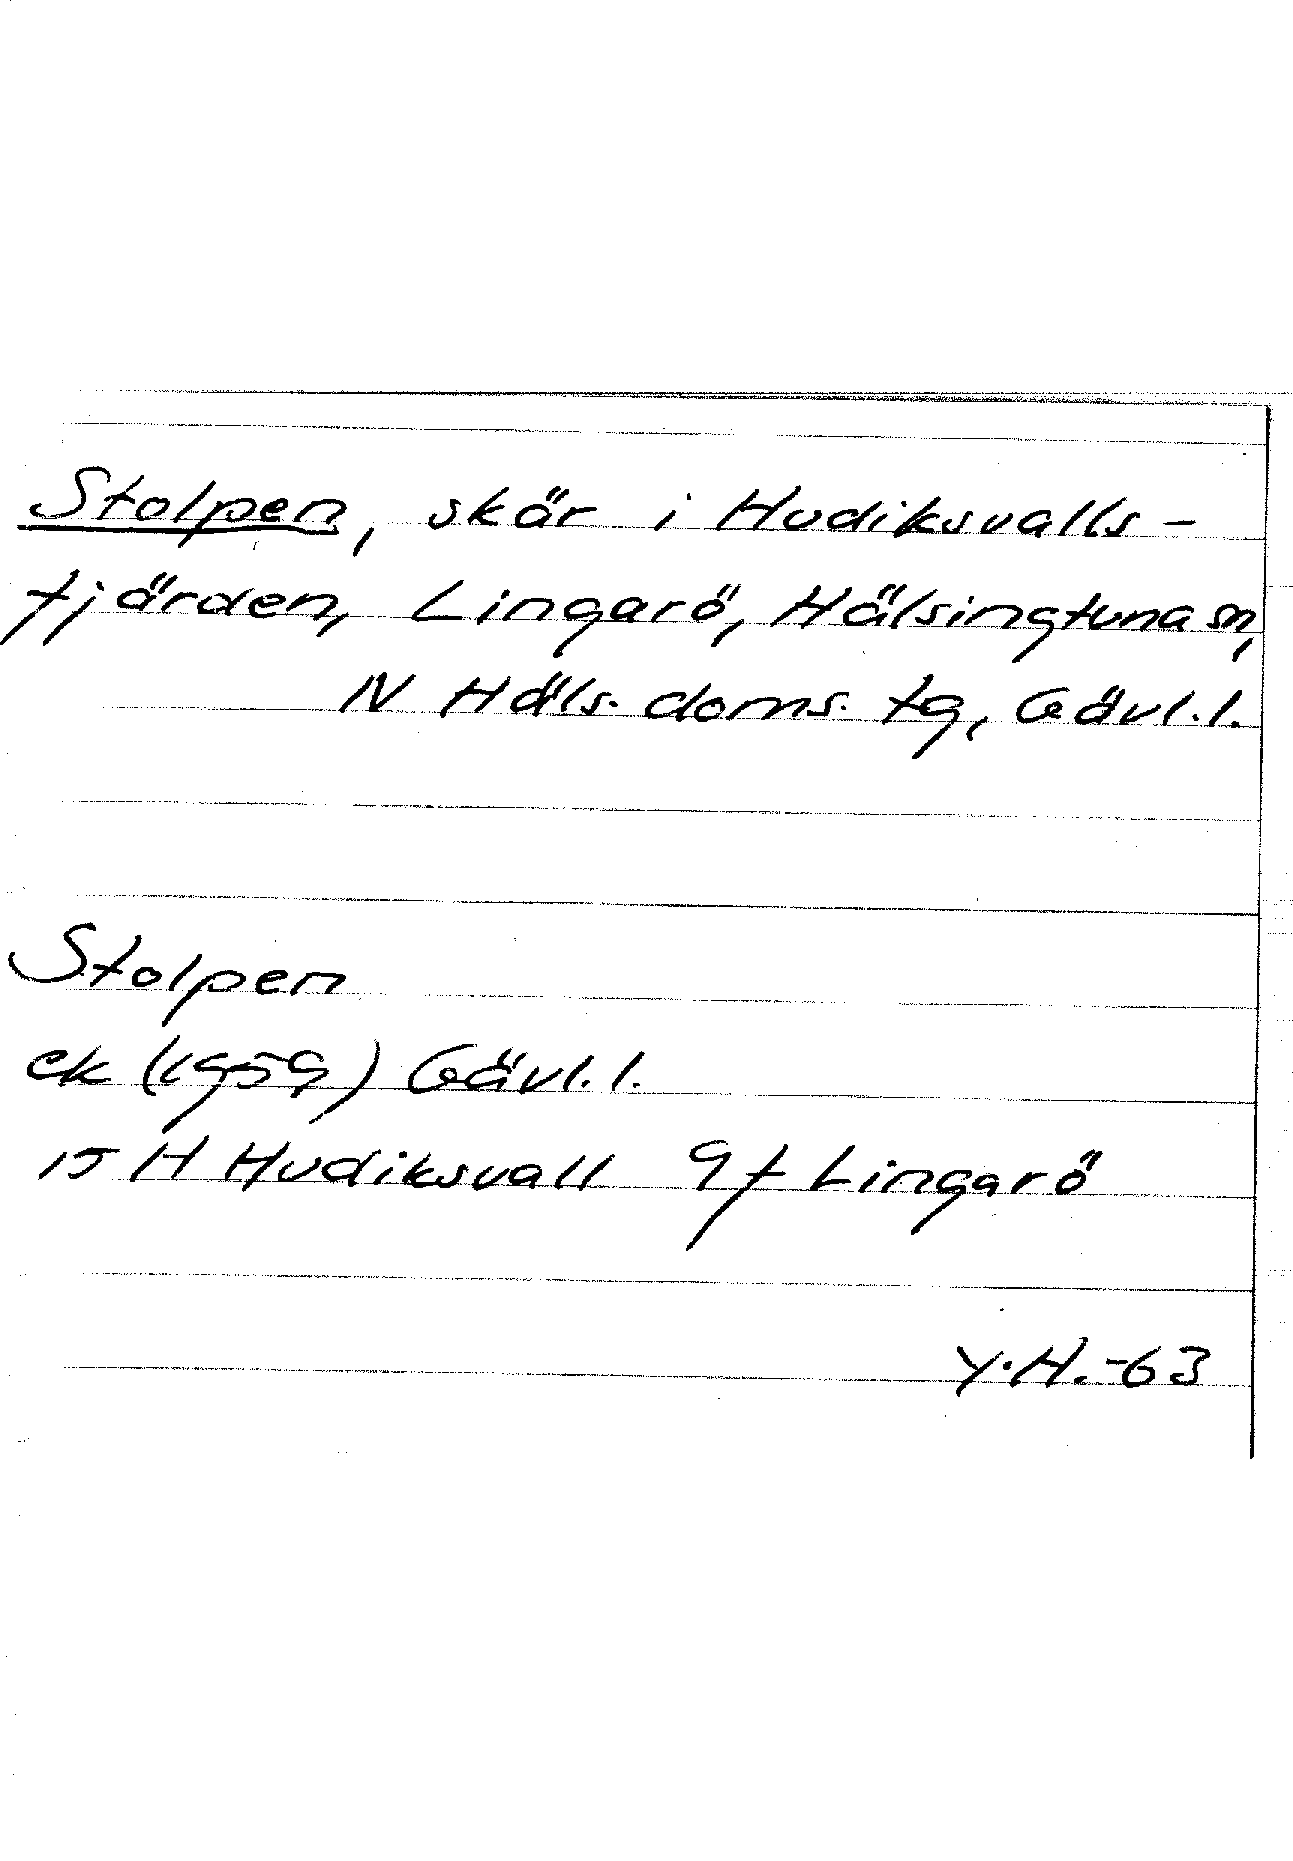 Stolpen, skär i Hudiksvalls-
fjärden, Lingarö, Hälsingtuna sn,
N Häls. doms. tg, Gävl.l.
Stolpen
ek (1959) Gävl.l.
15 H Hudiksvall 9f Lingarö
Y.H.-63